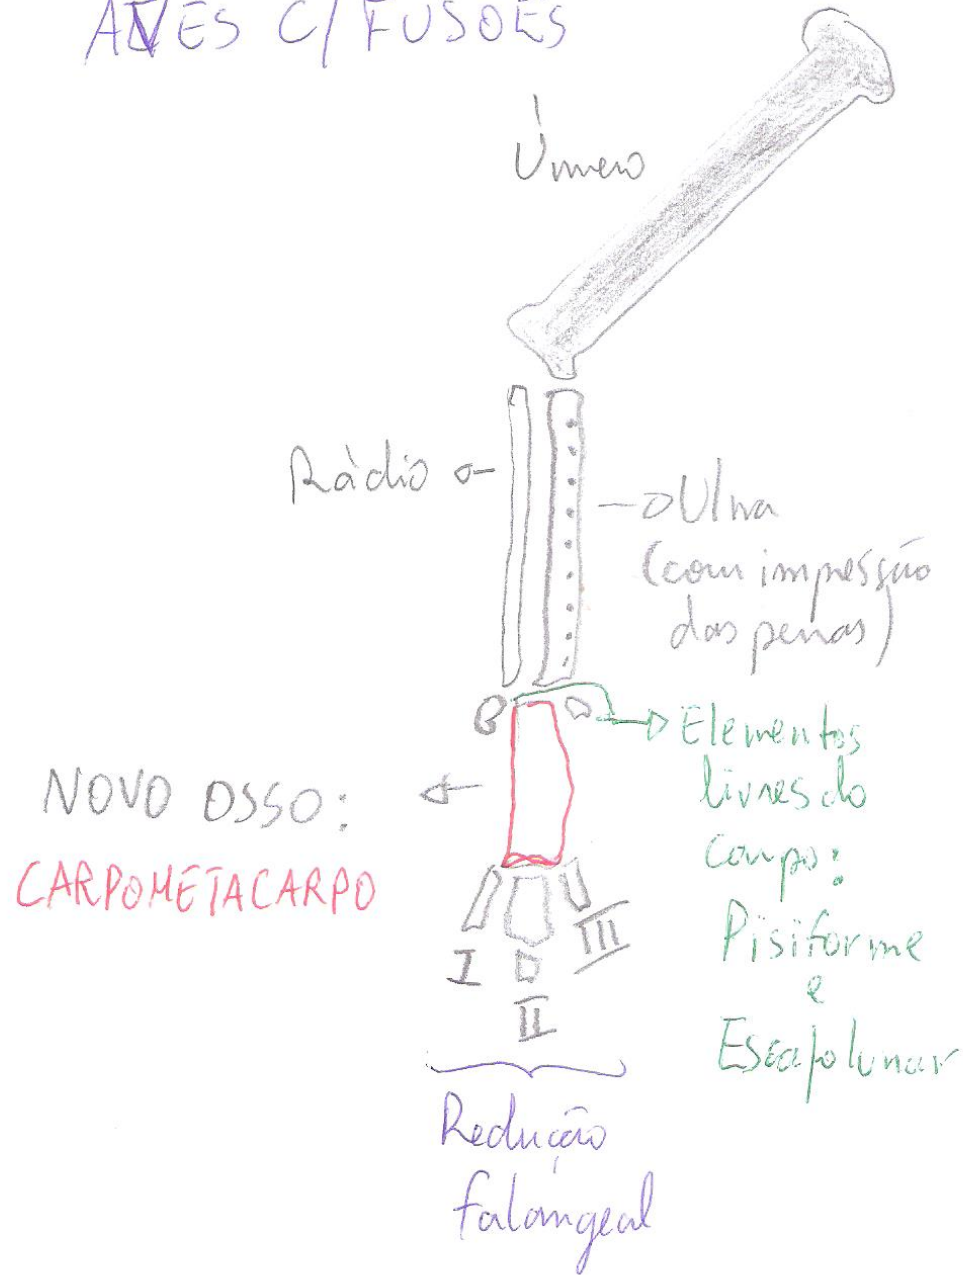 AVES C/ FUSOES
Úmero
Ràdio
Ulna
(com impressão
das penas)
Elementos
livres do
carpo:
Pisiforme
e
Escafolunar
NOVO OSSO:
CARPOMETACARPO
I
II
III
Redução
falangeal